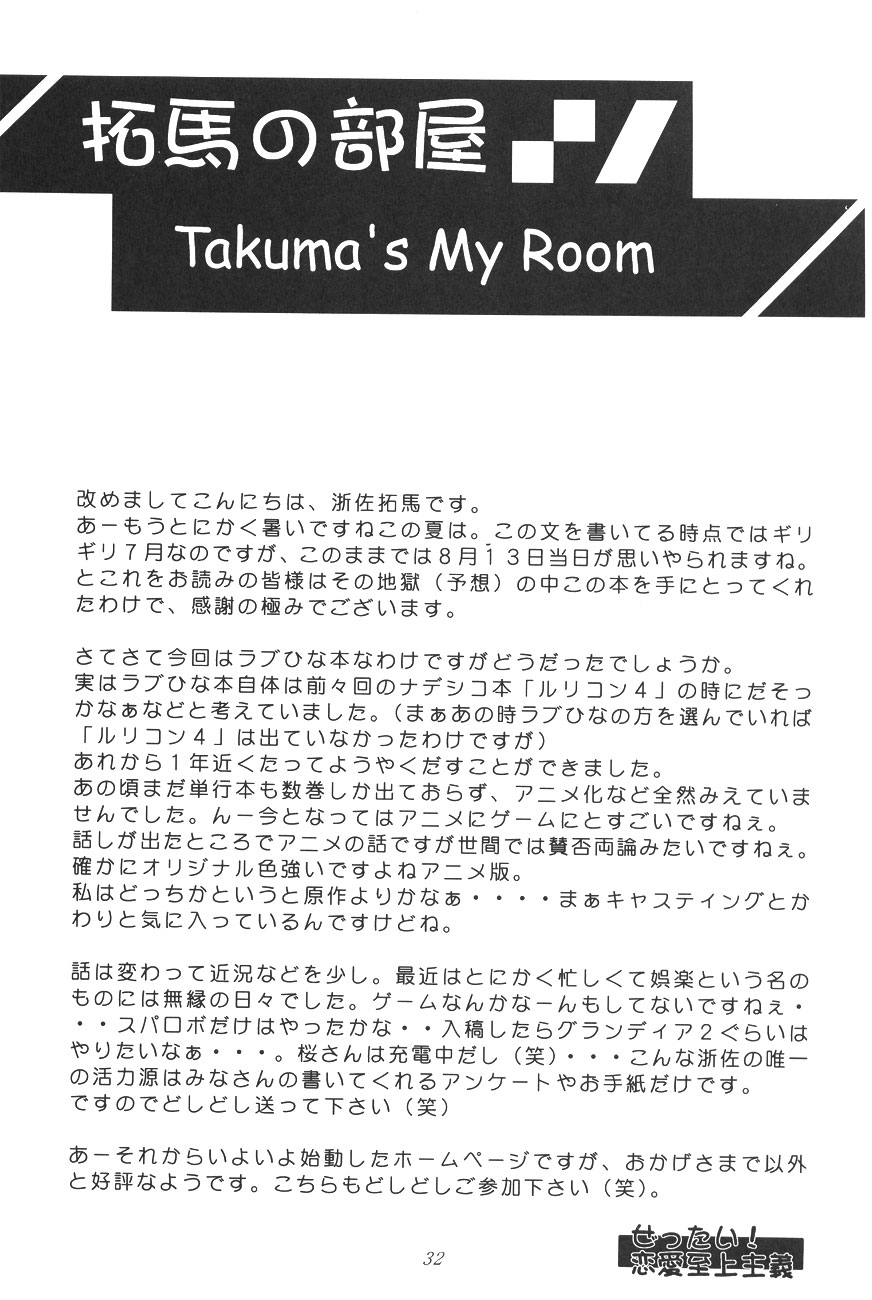 拓馬の部屋
Takuma's My Room
改めましてこんにちは、浙佐拓馬です。
あーもうとにかく暑いですねこの夏は。この文を書いてる時点ではギリ
ギリ７月なのですが、このままでは８月１３日当日が思いやられますね。
とこれをお読みの皆様はその地獄（予想）の中この本を手にとってくれ
たわけで、感謝の極みでございます。
さてさて今回はラブひな本なわけですがどうだったでしょうか。
実はラブひな本自体は前々回のナデシコ本「ルリコン４」の時にだそっ
かなぁなどと考えていました。（まぁあの時ラブひなの方を選んでいれば
「ルリコン４」は出ていなかったわけですが）
あれから１年近くたってようやくだすことができました。
あの頃まだ単行本も数巻しか出ておらず、アニメ化など全然みえていま
せんでした。んー今となってはアニメにゲームにとすごいですねぇ。
話しが出たところでアニメの話ですが世間では賛否両論みたいですねぇ。
確かにオリジナル色強いですよねアニメ版。
私はどっちかというと原作よりかなぁ・・・・まぁキャスティングとか
わりと気に入っているんですけどね。
話は変わって近況などを少し。最近はとにかく忙しくて娯楽という名の
ものには無縁の日々でした。ゲームなんかなーんもしてないですねぇ・
・・スパロボだけはやったかな・・入稿したらグランディア２ぐらいは
やりたいなぁ・・・。桜さんは充電中だし（笑）・・・こんな浙佐の唯一
の活力源はみなさんの書いてくれるアンケートやお手紙だけです。
ですのでどしどし送って下さい（笑）
あーそれからいよいよ始動したホームページですが、おかげさまで以外
と好評なようです。こちらもどしどしご参加下さい（笑）。
32
ぜったい！
恋愛至上主義